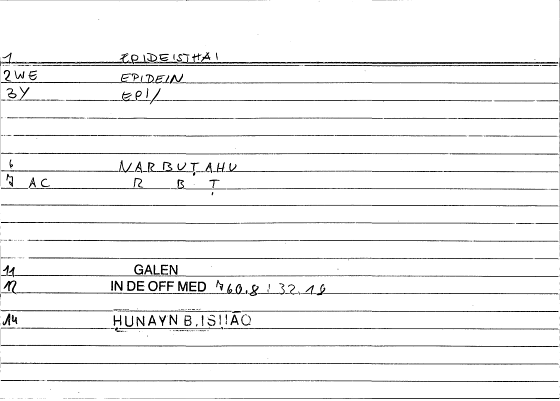 1 EPIDEISTHAI
2WE EPIDEIN
3Y EPI/
6 NARBUṬAHU
7 AC R B Ṭ
11 GALEN
12 IN DE OFF MED 760.8 : 32.19
14 ḤUNAYN B. ISḤĀQ